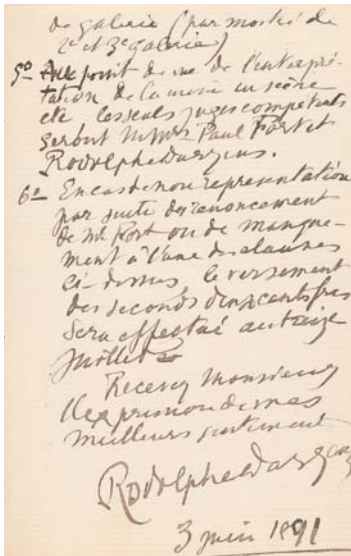 de galerie (par moitié de
2e et 3e galerie)
5o Au point de vue de l'interpré-
tation de la mise en scène
etc les seuls juges compétents
seront MMrs Paul Fort et
Rodolphe Darzens.
6o En cas de non représentation
par suite de renoncement
de Mr Fort ou de manque-
ment à l'une des clauses
ci-dessus, le versement
des seconds deux cents frcs
sera effectué au treize
Juillet
Recevez Monsieur
l'expression de mes
meilleurs sentiments
Rodolphe Darzens
3 juin 1891